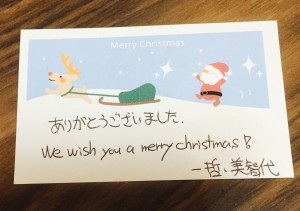 Merry Christmas
ありがとうございました.
We wish you a merry christmas!
一哲、美智代